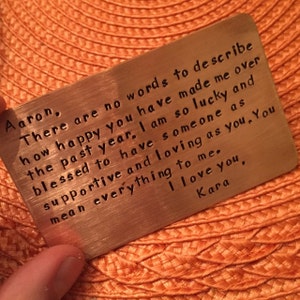 Aaron,
There are no words to describe
how happy you have made me over
the past year. I am so lucky and
blessed to have someone as
supportive and loving as you. You
mean everything to me.
I love you,
Kara